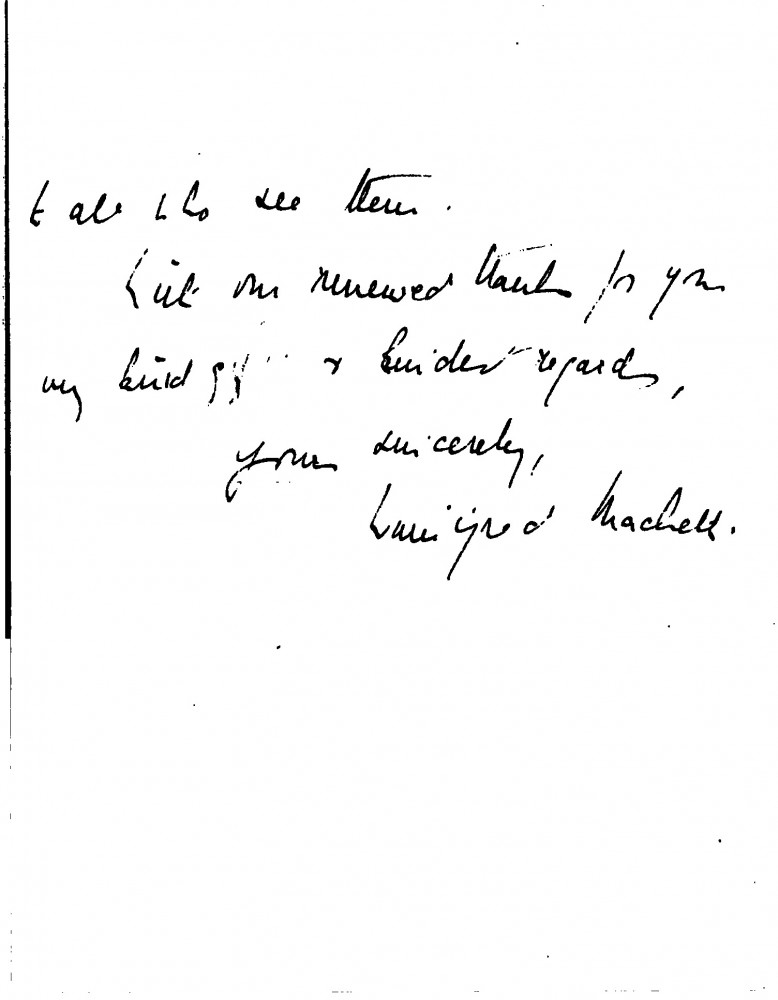 to all who see them.
With our renewed thanks for your
very kind gift & kindest regards,
yours sincerely,
Winifred Machell.